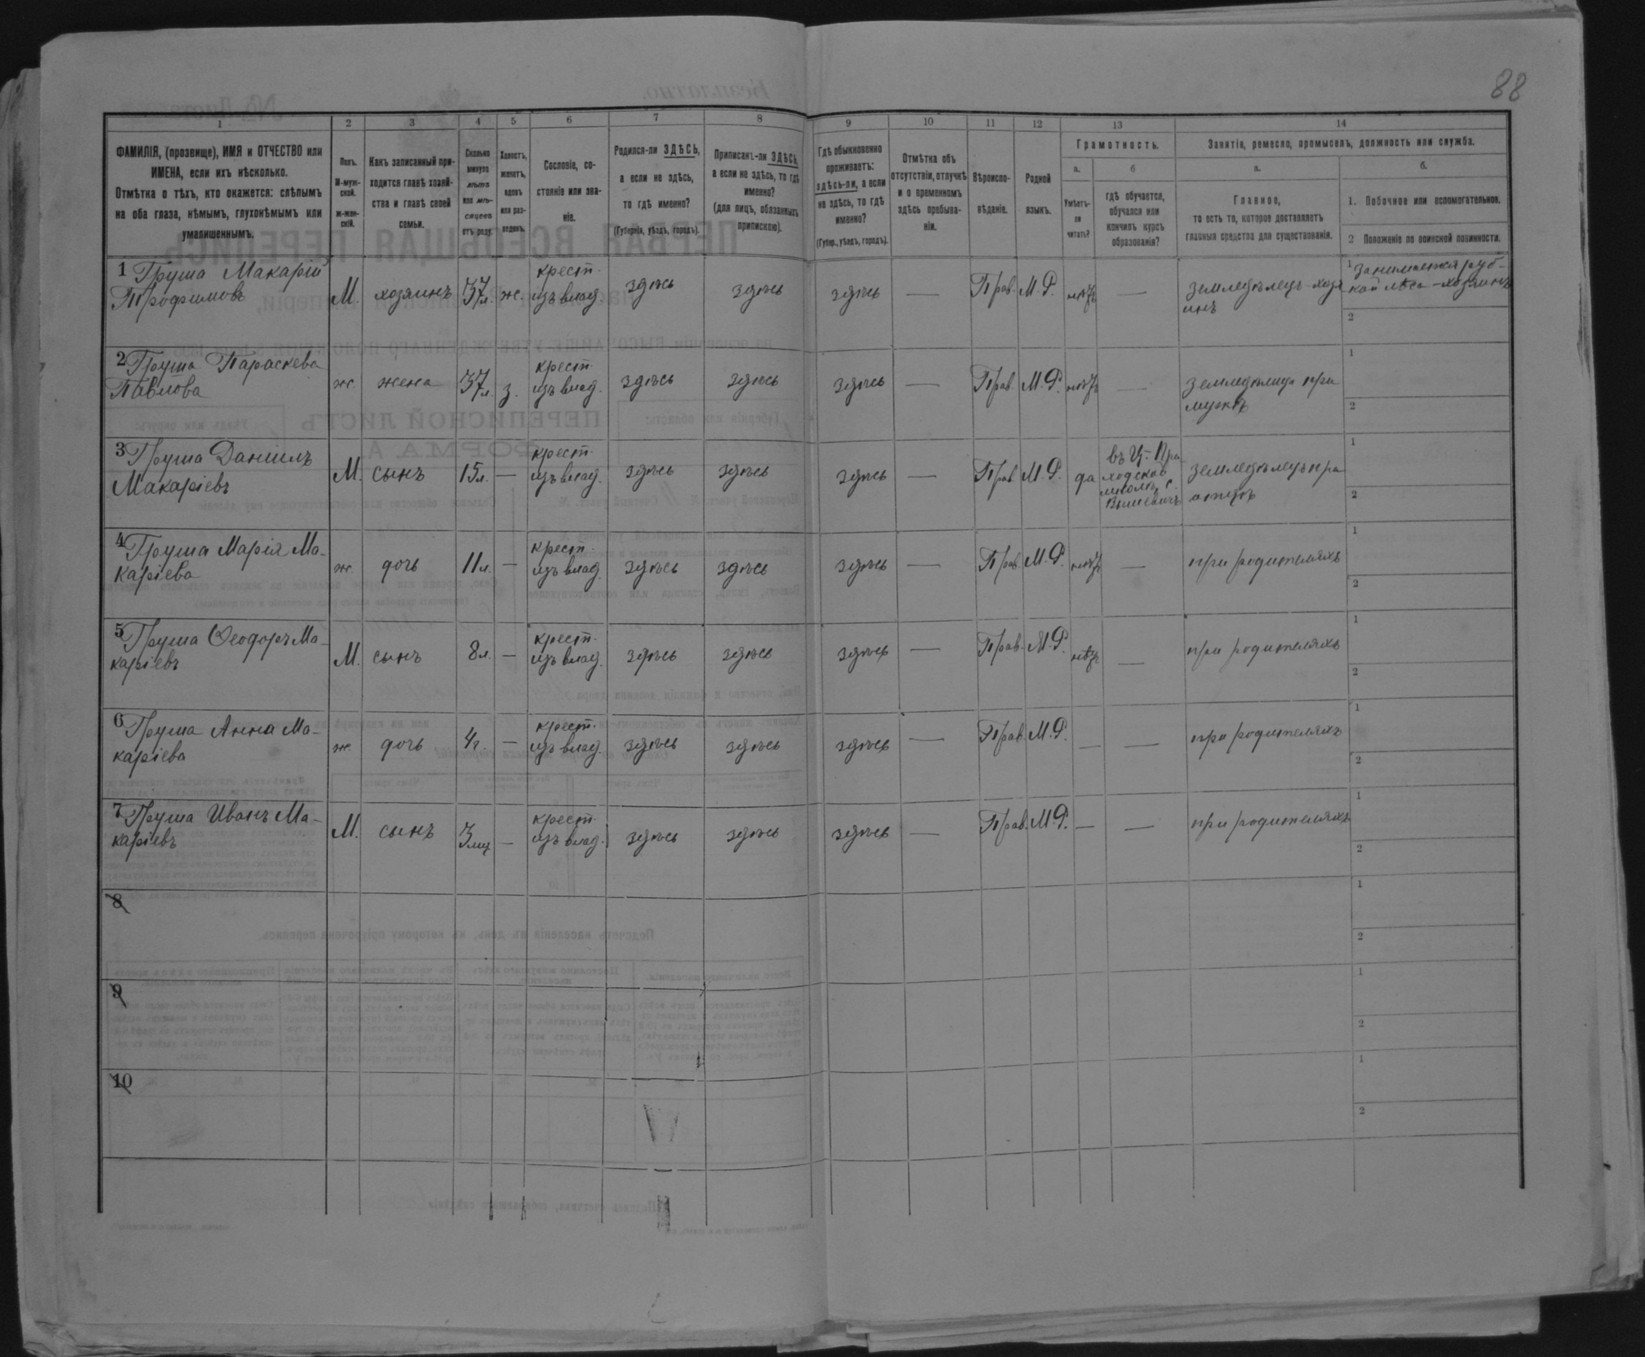 88
1 2 3 4 5 6 7 8 9 10 11 12 13 14
ФАМИЛІЯ, (прозвище), ИМЯ и ОТЧЕСТВО или
ИМЕНА, если ихъ нѣсколько.
Отмѣтка о тѣхъ, кто окажется: слѣпымъ
на оба глаза, нѣмымъ, глухонѣмымъ или
умалишеннымъ.
Полъ.
М-муж-
ской.
ж-жен-
скій.
Какъ записанный при-
ходится главѣ хозяй-
ства и главѣ своей
семьи.
Сколько
минуло
лѣтъ
или мѣ-
сяцевъ
отъ роду.
Холостъ,
женатъ,
вдовъ
или раз-
веденъ.
Сословіе, со-
стояніе или зва-
ніе.
Родился-ли ЗДѢСЬ,
а если не здѣсь,
то гдѣ именно?
(Губернія, уѣздъ, городъ).
Приписанъ-ли ЗДѢСЬ,
а если не здѣсь, то гдѣ
именно?
(для лицъ, обязанныхъ
припискою).
Гдѣ обыкновенно
проживаетъ:
здѣсь-ли, а если
не здѣсь, то гдѣ
именно?
(Губер., уѣздъ, городъ).
Отмѣтка объ
отсутствіи, отлучкѣ
и о временномъ
здѣсь пребыва-
ніи.
Вѣроиспо-
вѣданіе.
Родной
языкъ.
Грамотность.
а.
Умѣетъ-
ли
читать?
б
гдѣ обучается,
обучался или
кончилъ курсъ
образованія?
Занятіе, ремесло, промыселъ, должность или служба.
а.
Главное,
то есть то, которое доставляетъ
главныя средства для существованія.
б.
1. Побочное или вспомогательное.
2 Положеніе по воинской повинности.
1 Груша Макарій
Трофимовъ
М. хозяинъ 37 л. ж. крест.
изъ влад. здѣсь здѣсь здѣсь — Прав. М.Р. нѣтъ — земледѣлецъ-хозя
инъ
1 занимается руб-
кой лѣса-хозяинъ
2
2 Груша Параскева
Павлова
ж. жена 37 л. з. крест.
изъ влад. здѣсь здѣсь здѣсь — Прав. М.Р. нѣтъ — при
мужѣ
1
2
3 Груша Даніилъ
Макаріевъ
М. сынъ 15 л. — крест.
изъ влад. здѣсь здѣсь здѣсь — Прав. М.Р. да
въ Ц-При
ходской
с.
Вышевичъ
земледѣлецъ при
отцѣ
1
2
4 Груша Марія Ма-
каріева
ж. дочь 11 л. — крест.
изъ влад. здѣсь здѣсь здѣсь — Прав. М.Р. нѣтъ — при родителяхъ
1
2
5 Груша Ѳеодоръ Ма-
каріевъ
М. сынъ 8 л. — крест.
изъ влад. здѣсь здѣсь здѣсь — Прав. М.Р. нѣтъ — при родителяхъ
1
2
6 Груша Анна Ма-
каріева
ж. дочь 4 г. — крест.
изъ влад. здѣсь здѣсь здѣсь — Прав. М.Р. — — при родителяхъ
1
2
7 Груша Иванъ Ма-
каріевъ
М. сынъ 3 мц — крест.
изъ влад. здѣсь здѣсь здѣсь — Прав. М.Р. — — при родителяхъ
1
2
8
1
2
9
1
2
10
1
2